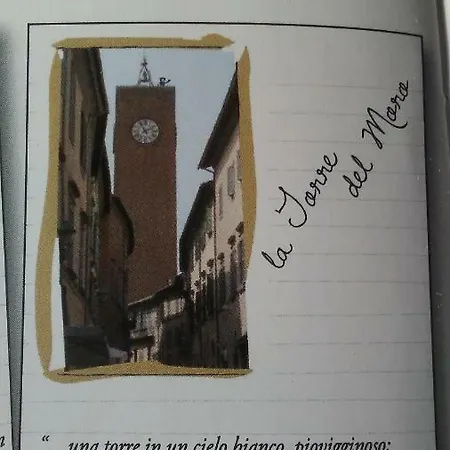 la Torre
del Moro
“ una torre in un cielo bianco, piovigginoso;